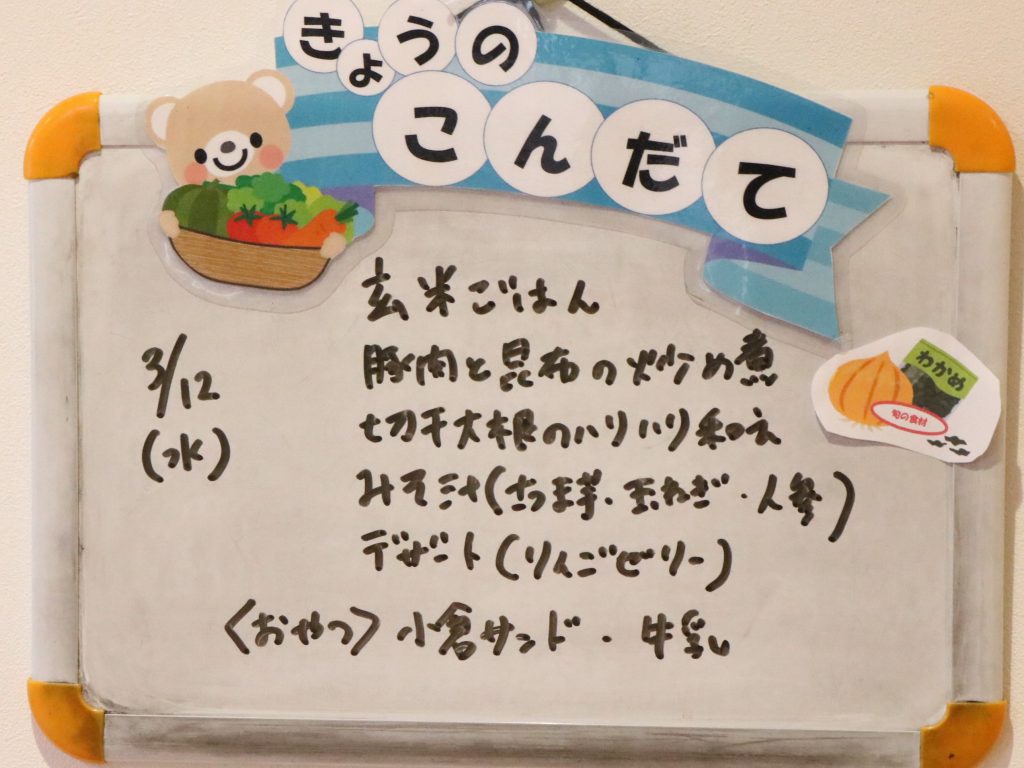 きょうの
こんだて
玄米ごはん
3/12
(水)
豚肉と昆布の炒め煮
切干大根のハリハリ和え
みそ汁(さつま芋・玉ねぎ・人参)
デザート(りんごゼリー)
〈おやつ〉小倉サンド・牛乳
わかめ
旬の食材